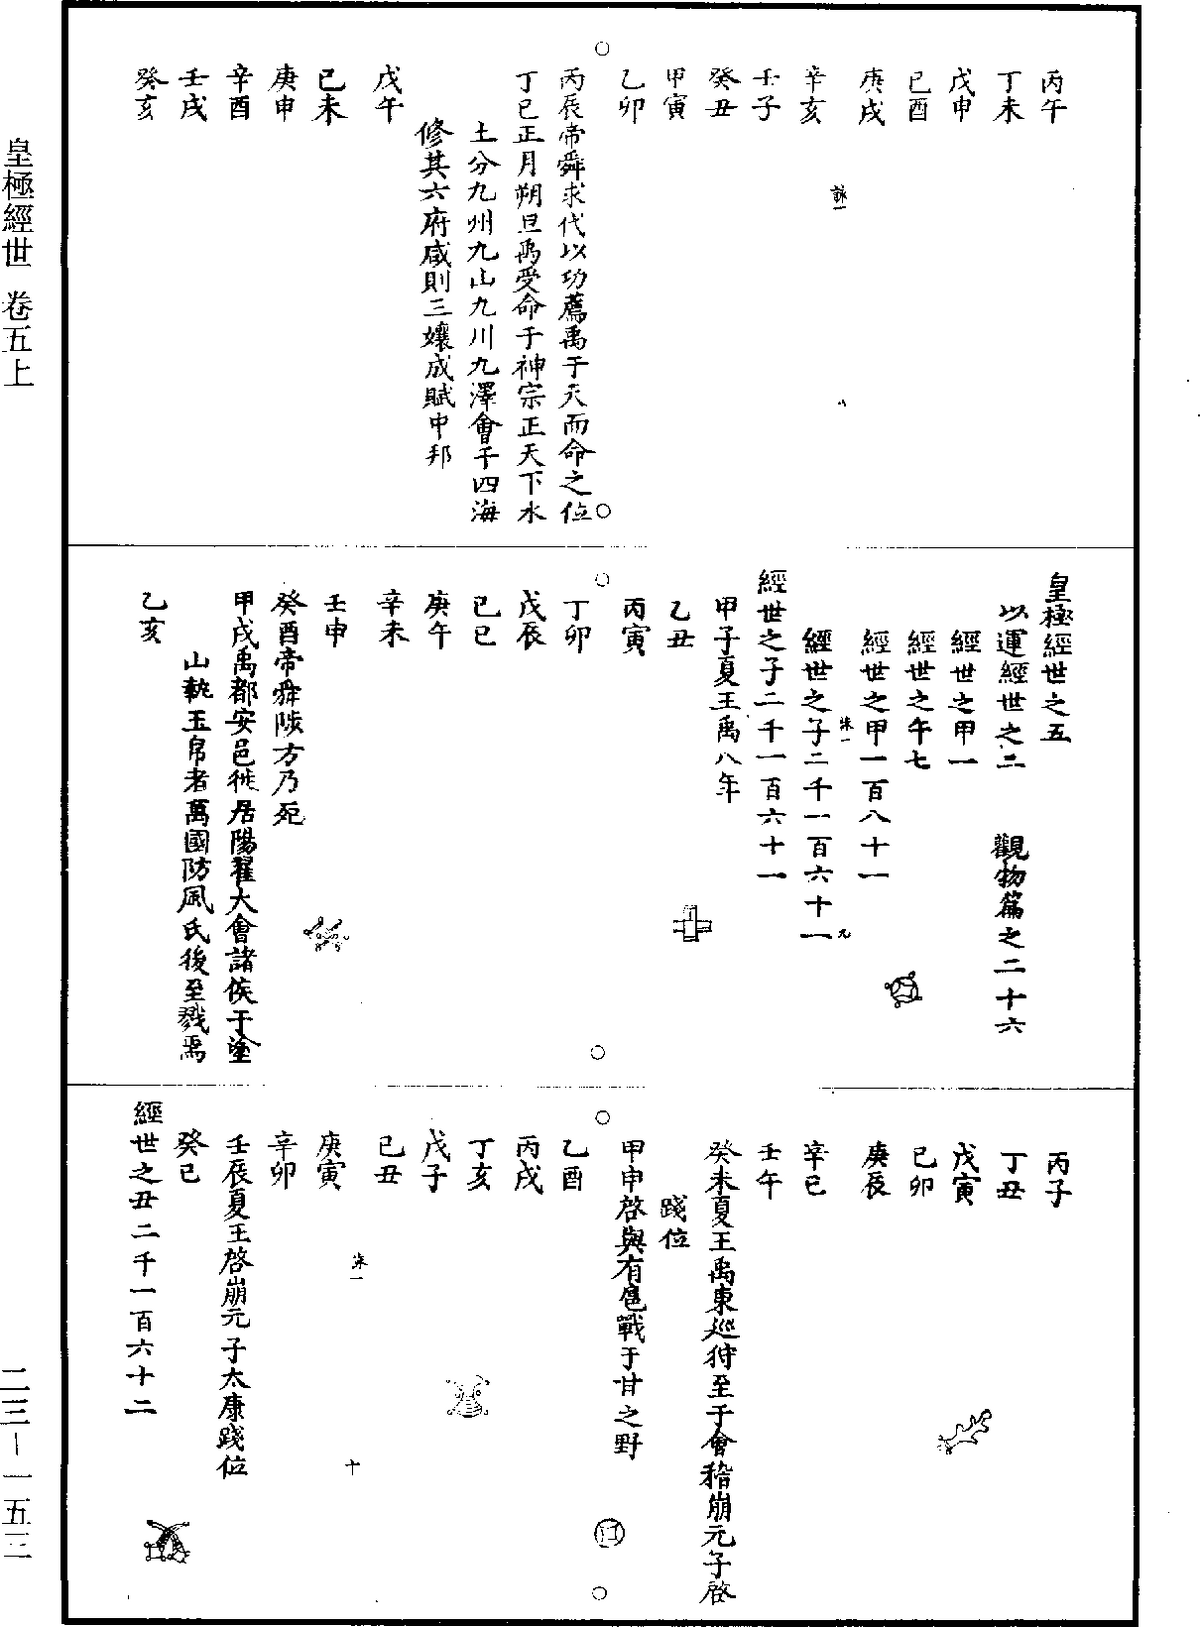 丙午
丁未
戊申
己酉
庚戌
辛亥
壬子
癸丑
甲寅
乙卯
丙辰帝舜求代以功薦禹于天而命之位
丁巳正月朔旦禹受命于神宗正天下水
土分九州九山九川九澤會于四海
修其六府咸則三壤成賦中邦
戊午
己未
庚申
辛酉
壬戌
癸亥
皇極經世之五
以運經世之二 觀物篇之二十六
經世之甲一
經世之午七
經世之甲一百八十一
經世之子二千一百六十一
經世之子二千一百六十一
甲子夏王禹八年
乙丑
丙寅
丁卯
戊辰
己巳
庚午
辛未
壬申
癸酉帝舜陟方乃死
甲戌禹都安邑徙居陽翟大會諸侯于塗
山執玉帛者萬國防風氏後至戮焉
乙亥
丙子
丁丑
戊寅
己卯
庚辰
辛巳
壬午
癸未夏王禹東巡狩至于會稽崩元子啓
踐位
甲申啓與有扈戰于甘之野
乙酉
丙戌
丁亥
戊子
己丑
庚寅
辛卯
壬辰夏王啓崩元子太康踐位
癸巳
經世之丑二千一百六十二
皇極經世 卷五上
二三－一五三